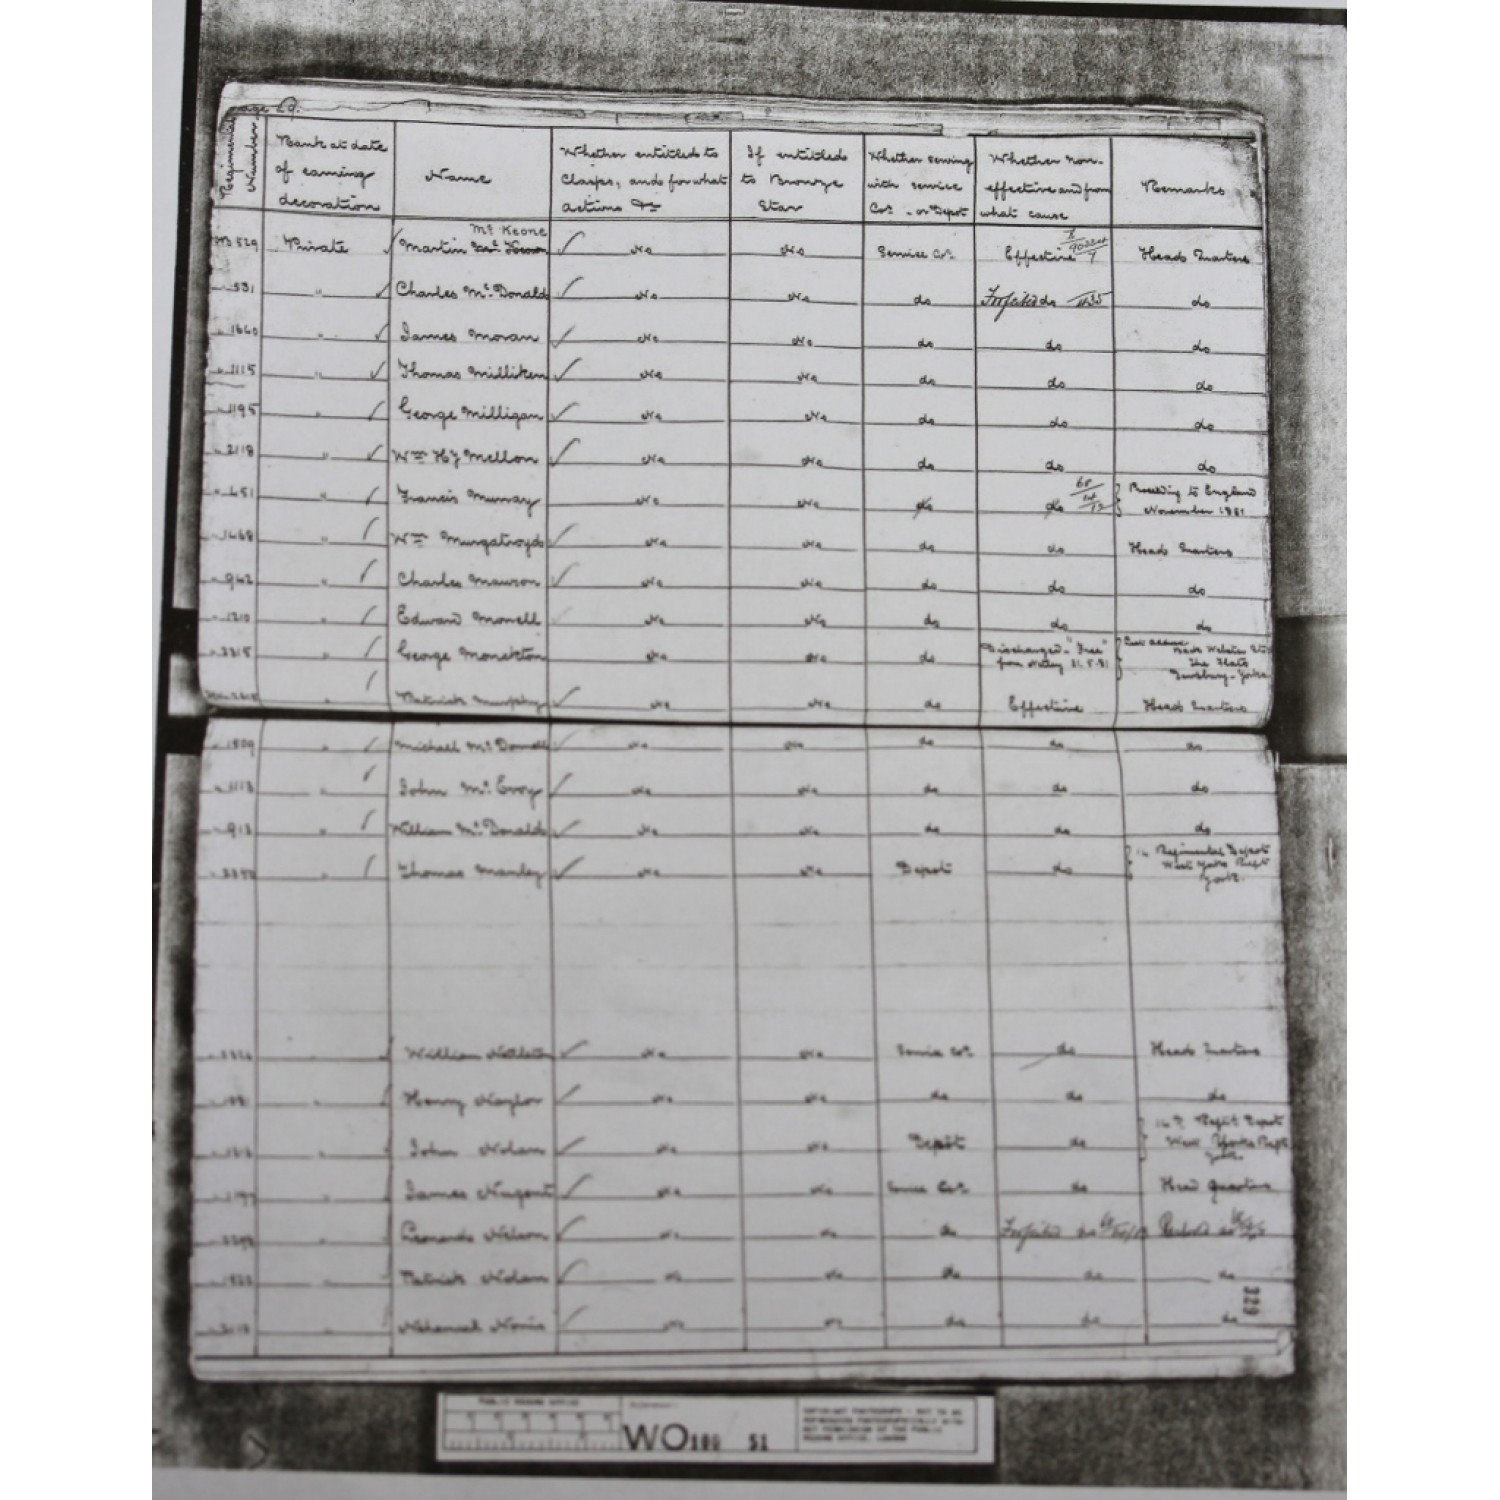 Page 29.
Regimental Number | Rank at date of earning decoration | Name | Whether entitled to Clasps, and for what actions &c | If entitled to Bronze Star | Whether serving with service Cos. or Depot | Whether non-effective and from what cause | Remarks
529 Private Martin McKeown McKeone No No Service Cos. Effective Head Quarters
531 " Charles McDonald No No do Forfeited do do
1640 " James Moran No No do do do
1115 " Thomas Milliken No No do do do
1195 " George Milligan No No do do do
2118 " Wm Hy Mellon No No do do do
451 " Francis Murray No No do do Proceeding to England November 1881
1468 " Wm Murgatroyd No No do do Head Quarters
942 " Charles Mawson No No do do do
1210 " Edward Morrell No No do do do
2315 " George Monckton No No do Discharged "Free" from Netley 31.5.81
" Patrick Murphy No No do Effective Head Quarters
1509 " Michael McDonnell No No do do do
1113 " John McEvoy No No do do do
913 " William McDonald No No do do do
" Thomas Manley No No Depôt do Regimental Depôt West Yorks Regt York.
" William Nettleton No No Service Cos. do Head Quarters
" Henry Naylor No No do do do
" John Nolan No No Depôt do Regtl Depôt West Yorks Regt York.
" James Nugent No No Service Cos. do Head Quarters
" Leonard Nelson No No do Forfeited do
" Patrick Nolan No No do do do
" Nathaniel Norris No No do do do
329
PUBLIC RECORD OFFICE
Reference:-
WO 100 51
COPYRIGHT PHOTOGRAPH - NOT TO BE
REPRODUCED PHOTOGRAPHICALLY WITH-
OUT PERMISSION OF THE PUBLIC
RECORD OFFICE, LONDON